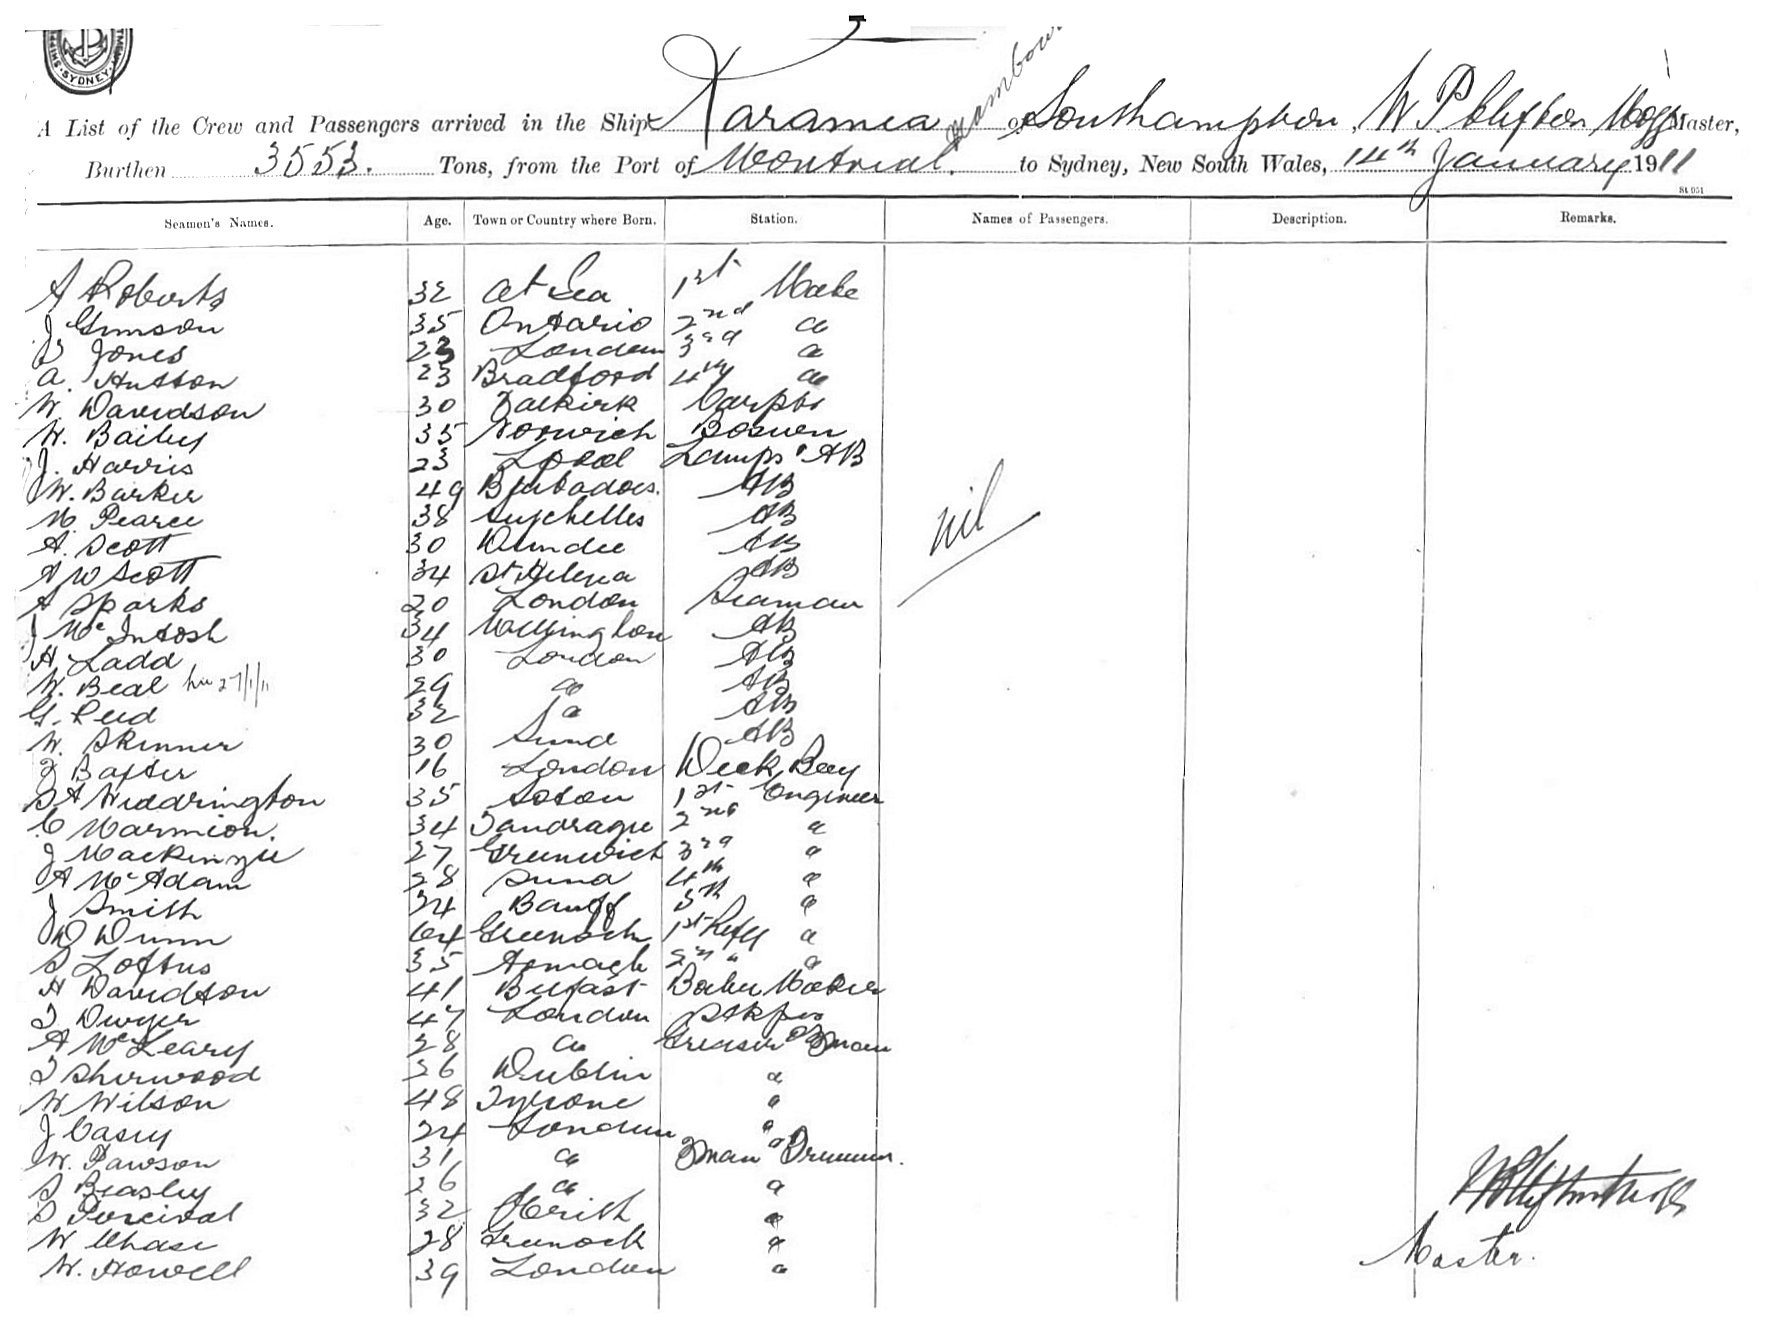 SYDNEY
A List of the Crew and Passengers arrived in the Ship Karamea of Southampton, W P Clifton Mogg Master,
Burthen 3553. Tons, from the Port of Montreal. to Sydney, New South Wales, 14th January 1911
St 051
Seamen's Names. Age. Town or Country where Born. Station. Names of Passengers. Description. Remarks.
A Roberts 32 At Sea 1st Mate
J Gimson 35 Ontario 2nd "
D Jones 23 London 3rd "
A. Hutton 23 Bradford 4th "
W. Davidson 30 Falkirk Carptr
W. Bailey 35 Norwich Bosuen
J. Harris 23 Lamps & AB
W. Barker 49 Barbadoes. AB
M Pearce 38 Seychelles AB
A. Scott 30 Dundee AB
A W Scott 34 St Helena AB
A Sparks 20 London Seaman
J McIntosh 34 Wellington AB
H Ladd 30 London AB
W. Beal 27/1/11 29 " AB
G. Reid 32 " AB
W. Skinner 30 Sund AB
F Baxter 16 London Deck Boy
S A Widdrington 35 Soton 1st Engineer
C Marmion. 34 Tandragee 2nd "
J Mackenzie 27 Greenwich 3rd "
A McAdam 28 Sund 4th "
J Smith 24 Banff 5th "
D Dunn 64 Greenock 1st Refg "
S Loftus 35 Armagh 2nd " "
H Davidson 41 Belfast Boiler Maker
T Dwyer 47 London Stkpr
A McLeary 28 " Greaser & Fman
T Sherwood 36 Dublin "
W Wilson 48 Tyrone "
J Casey 24 London "
W. Pawson 31 " Fman & Trimmer.
S Beasley 26 " "
S Percival 32 Erith "
W Chase 28 Greenock "
W. Howell 39 London "
nil
W P Clifton Mogg
Master.